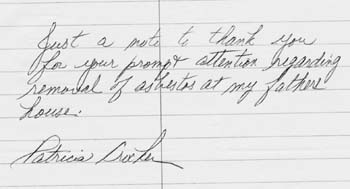 Just a note to thank you
for your prompt attention regarding
removal of asbestos at my fathers
house.
Patricia